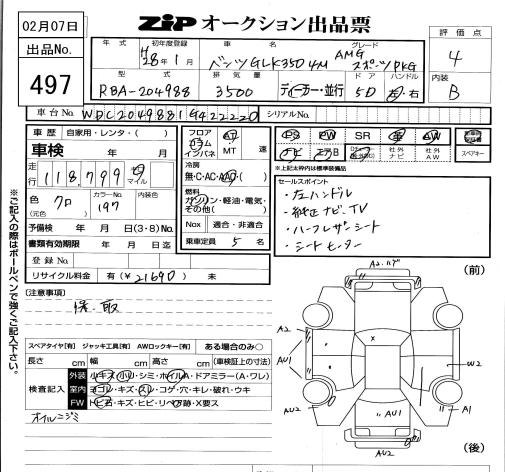 02月07日
出品No.
497
ZIP オークション出品票
評価点
4
内装
B
年式 初年度登録 車名 グレード
H28年1月 ベンツGLK350 4M AMGスポーツPKG
型式 排気量 ドア ハンドル
RBA-204988 3500 ディーラー・並行 5D 左・右
車台No. WDC2049881G422220 シリアルNo.
車歴 自家用・レンタ・( )
車検 年 月
走行 118,799 マイル
色 (元色) クロ カラーNo. 197 内装色
予備検 年 月 日(3・8)No.
書類有効期限 年 月 日迄
登録No.
リサイクル料金 有(¥21690) 未
フロア コラム インパネ AT MT 速
冷房
無・C・AC・AAC・( )
燃料
ガソリン・軽油・電気・その他( )
Nox 適合・非適合
乗車定員 5 名
PS PW SR 革 AW
ナビ エアB 社外ナビ 社外AW スペアキー
※上記太枠内は標準装備品
セールスポイント
・左ハンドル
・純正ナビ、TV
・ハーフレザーシート
・シートヒーター
(注意事項)
保、取
スペアタイヤ[有] ジャッキ工具[有] AWロックキー[有] ある場合のみ○
長さ cm 幅 cm 高さ cm (車検証上の寸法)
検査記入
外装 小キズ・小凹・シミ・ホイルA・ドアミラー(A・ワレ)
室内 ヨゴレ・キズ・スレ・コゲ・穴・キレ・破れ・ウキ
FW トビ石・キズ・ヒビ・リペア跡・X要ス
オイルニジミ
※ご記入の際はボールペンで強くご記入下さい。
(前)
A2.ハゲ
A2
AU1
AU2
W2
A1
AU1
AU2
(後)